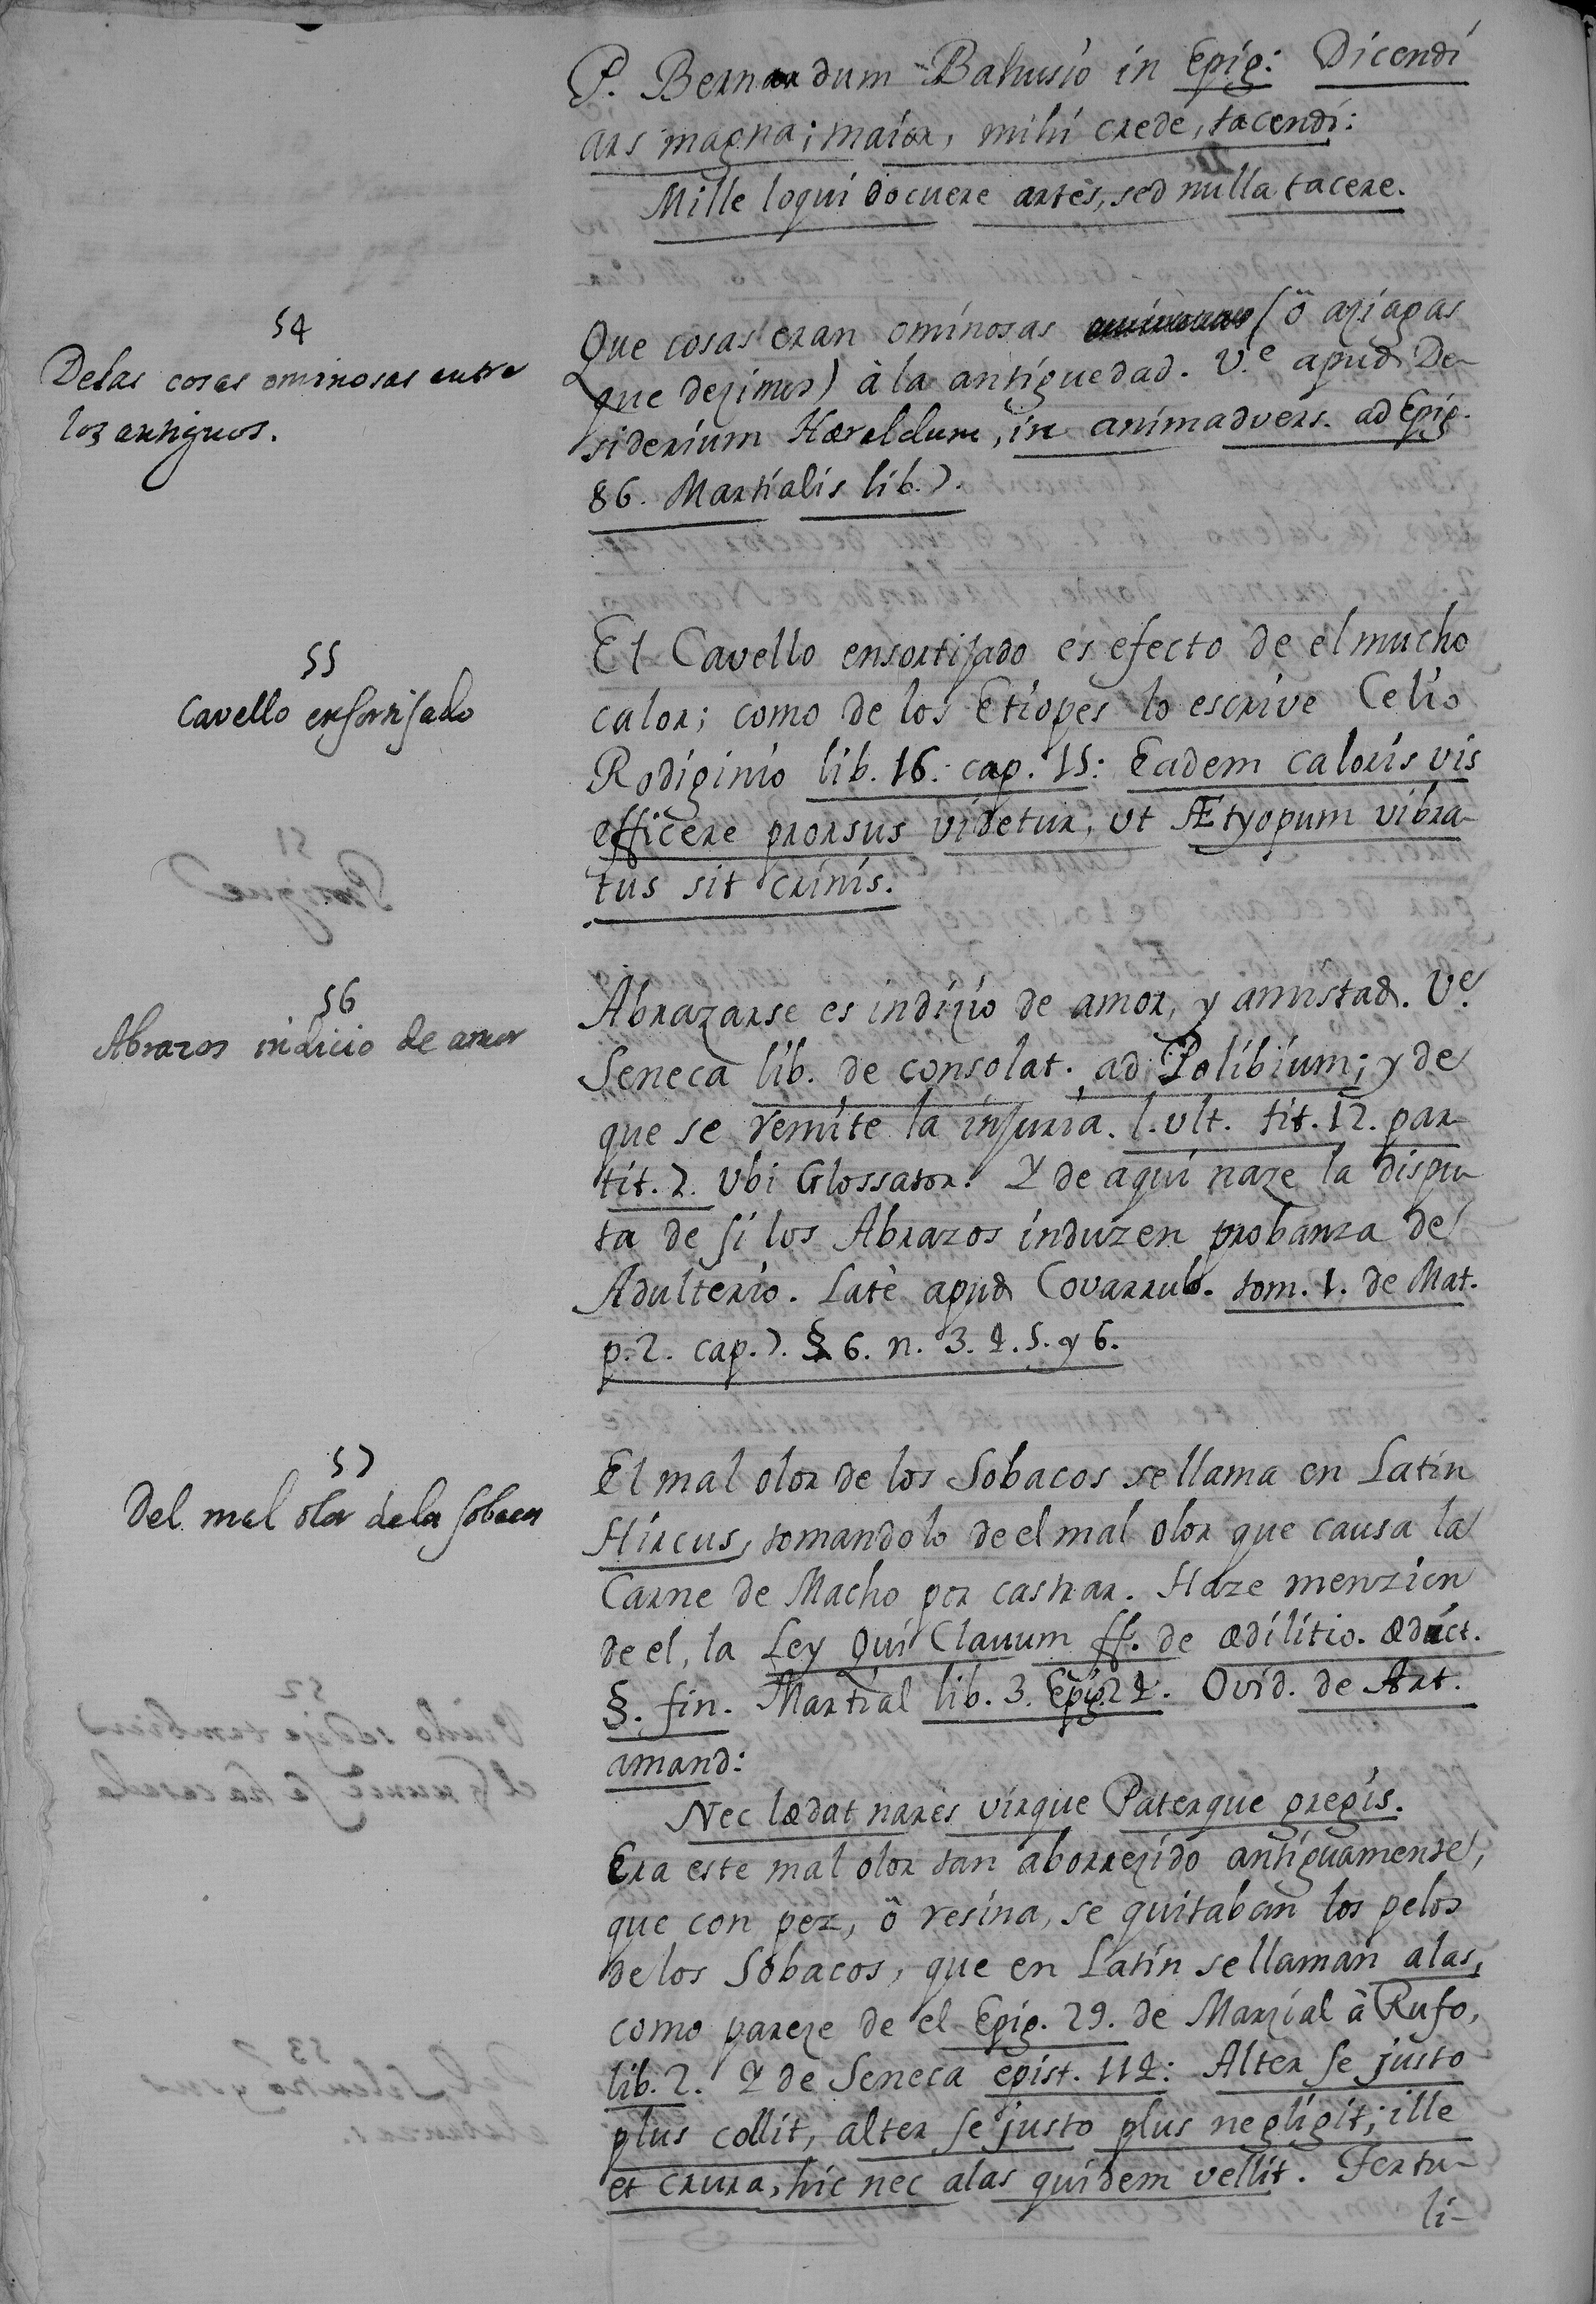 P. Bernardum Bahusio in Epig: Dicendi
ars magna; maior, mihi crede, tacendi:
Mille loqui docuere artes, sed nulla tacere.
54
De las cosas ominosas entre
los antiguos.
Que cosas eran ominosas (ô aziagas
que dezimos) à la antiguedad. V.e apud De-
siderium Hæraldum, in animadvers. ad Epig.
86. Martialis lib. 7.
55
Cavello ensortijado
El Cavello ensortijado es efecto de el mucho
calor; como de los Etiopes lo escrive Celio
Rodiginio lib. 16. cap. 15: Eadem caloris vis
efficere prorsus videtur, ut Ætyopum vibra-
tus sit crinis.
56
Abrazos indicio de amor
Abrazarse es indizio de amor, y amistad. V.e
Seneca lib. de consolat. ad Polibium; y de
que se remite la injuria. l. ult. tit. 12. par-
tit. 7. Ubi Glossator. Y de aqui naze la dispu-
ta de si los Abrazos induzen probanza de
Adulterio. Latè apud Covarrub. tom. 1. de Mat.
p. 2. cap. 7. § 6. n. 3. 4. 5. y 6.
57
Del mal olor de los sobacos
El mal olor de los Sobacos se llama en Latin
Hircus, tomandolo de el mal olor que causa la
Carne de Macho por castrar. Haze menzion
de el, la Ley Qui Clauum ff. de ædilitio. ædict.
§. fin. Martial lib. 3. Epig. 24. Ovid. de Art.
amand:
Nec lædat nares virque Paterque gregis.
Era este mal olor tan aborrezido antiguamente,
que con pez, ô resina, se quitaban los pelos
de los Sobacos, que en Latin se llaman alas,
como pareze de el Epig. 29. de Marzial à Rufo,
lib. 2. Y de Seneca epist. 114: Alter se justo
plus collit, alter se justo plus negligit; ille
et crura, hic nec alas quidem vellit. Tertu-
li-